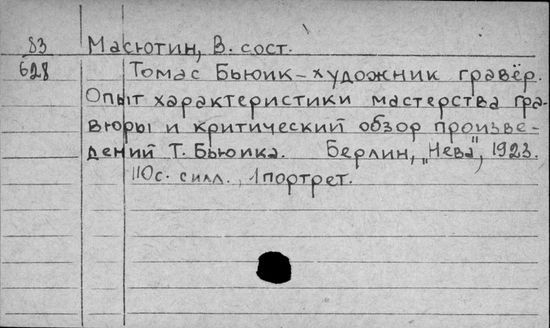 83 Масютин, В. сост.
628 Томас Бьюик - художник гравёр.
Опыт характеристики мастерства гра-
вюры и критический обзор произве-
дений Т. Бьюика. Берлин, „Нева", 1923.
110с. силл., 1 портрет.